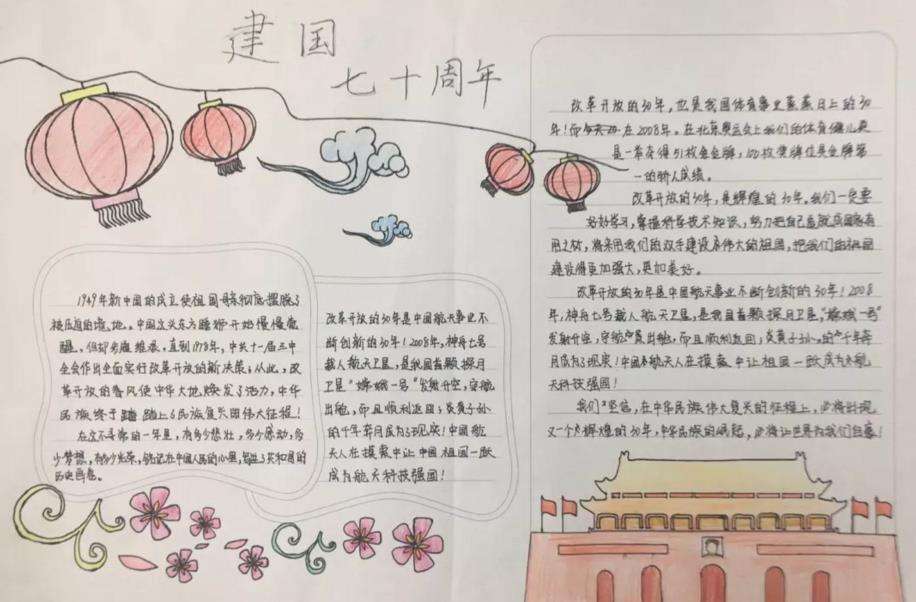 建国
七十周年
1949年新中国的成立使祖国母亲彻底摆脱了
被压迫的境地。中国这头东方睡狮开始慢慢
醒。但却步履维艰。直到1978年,中共十一届三中
全会作出全面实行改革开放的新决策,从此,改
革开放的春风使中华大地焕发了活力,中华
民族终于踏上了民族复兴的伟大征程!
在这不寻常的一年里,有多少悲壮,多少感动,多
少梦想,有多少光荣,铭记在中国人民的心里,了共和国的
历史
改革开放的30年是中国航天事业不
断创新的30年!2008年,神舟七号
载人航天卫星,是我国首颗探月
卫星"嫦娥一号"发射升空,穿航
出舱,而且顺利返回;炎黄子孙
的千年奔月成为了现实!中国航
天人在摸索中让中国祖国一跃
成为航天科技强国!
改革开放的30年,也是我国体育事业蒸蒸日上的30
年!而在2008年。在北京奥运会上我们的体育健儿更
是一举夺得51枚金牌,100枚奖牌位居金牌第
一的骄人成绩。
改革开放的30年,是辉煌的30年。我们一定要
好好学习,掌握科学技术知识,努力把自己国家有
用之材,将来用我们的双手建设伟大的祖国,把我们的祖国
建设得更加强大,更加美好。
改革开放的30年是中国航天事业不断创新的30年!2008
年,神舟七号载人航天卫星,是我国首颗探月卫星,"嫦娥一号"
发射升空,穿航出舱,而且顺利返回,炎黄子孙的千年奔
月成为了现实!中国航天人在摸索中让祖国一跃成为航
天科技强国!
我们坚信,在中华民族伟大复兴的征程上,必将出现
又一个辉煌的30年,中华民族的崛起,必将让世界为我们自豪!